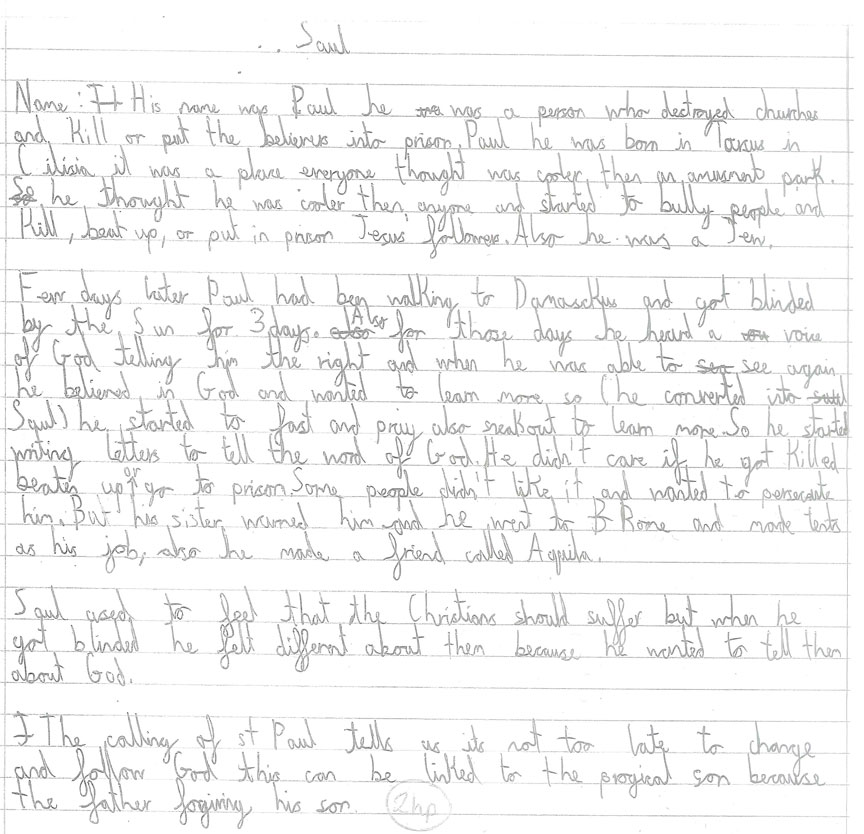 Saul
Name: It His name was Paul he was a person who destroyed churches
and Kill or put the believers into prison. Paul he was born in Tarsus in
Cilisia it was a place everyone thought was cooler then an amusment park.
So he thought he was cooler then anyone and started to bully people and
Kill, beat up, or put in prison Jesus' followers. Also he was a Jew.
Few days later Paul had been walking to Damasckus and got blinded
by the Sun for 3 days. Also for those days he heard a voice
of God telling him the right and when he was able to see again
he believed in God and wanted to learn more so (he converted into
Saul) he started to fast and pray also sneakout to learn more. So he started
writing letters to tell the word of God. He didn't care if he got killed
beaten up or go to prison. Some people didn't like it and wanted to persecute
him. But his sister warned him and he went to Rome and made tents
as his job, also he made a friend called Aquila.
Saul used to feel that the Christians should suffer but when he
got blinded he felt different about them because he wanted to tell them
about God.
I The calling of st Paul tells us its not too late to change
and follow God this can be linked to the progical son because
the father forgiving his son. 2hp